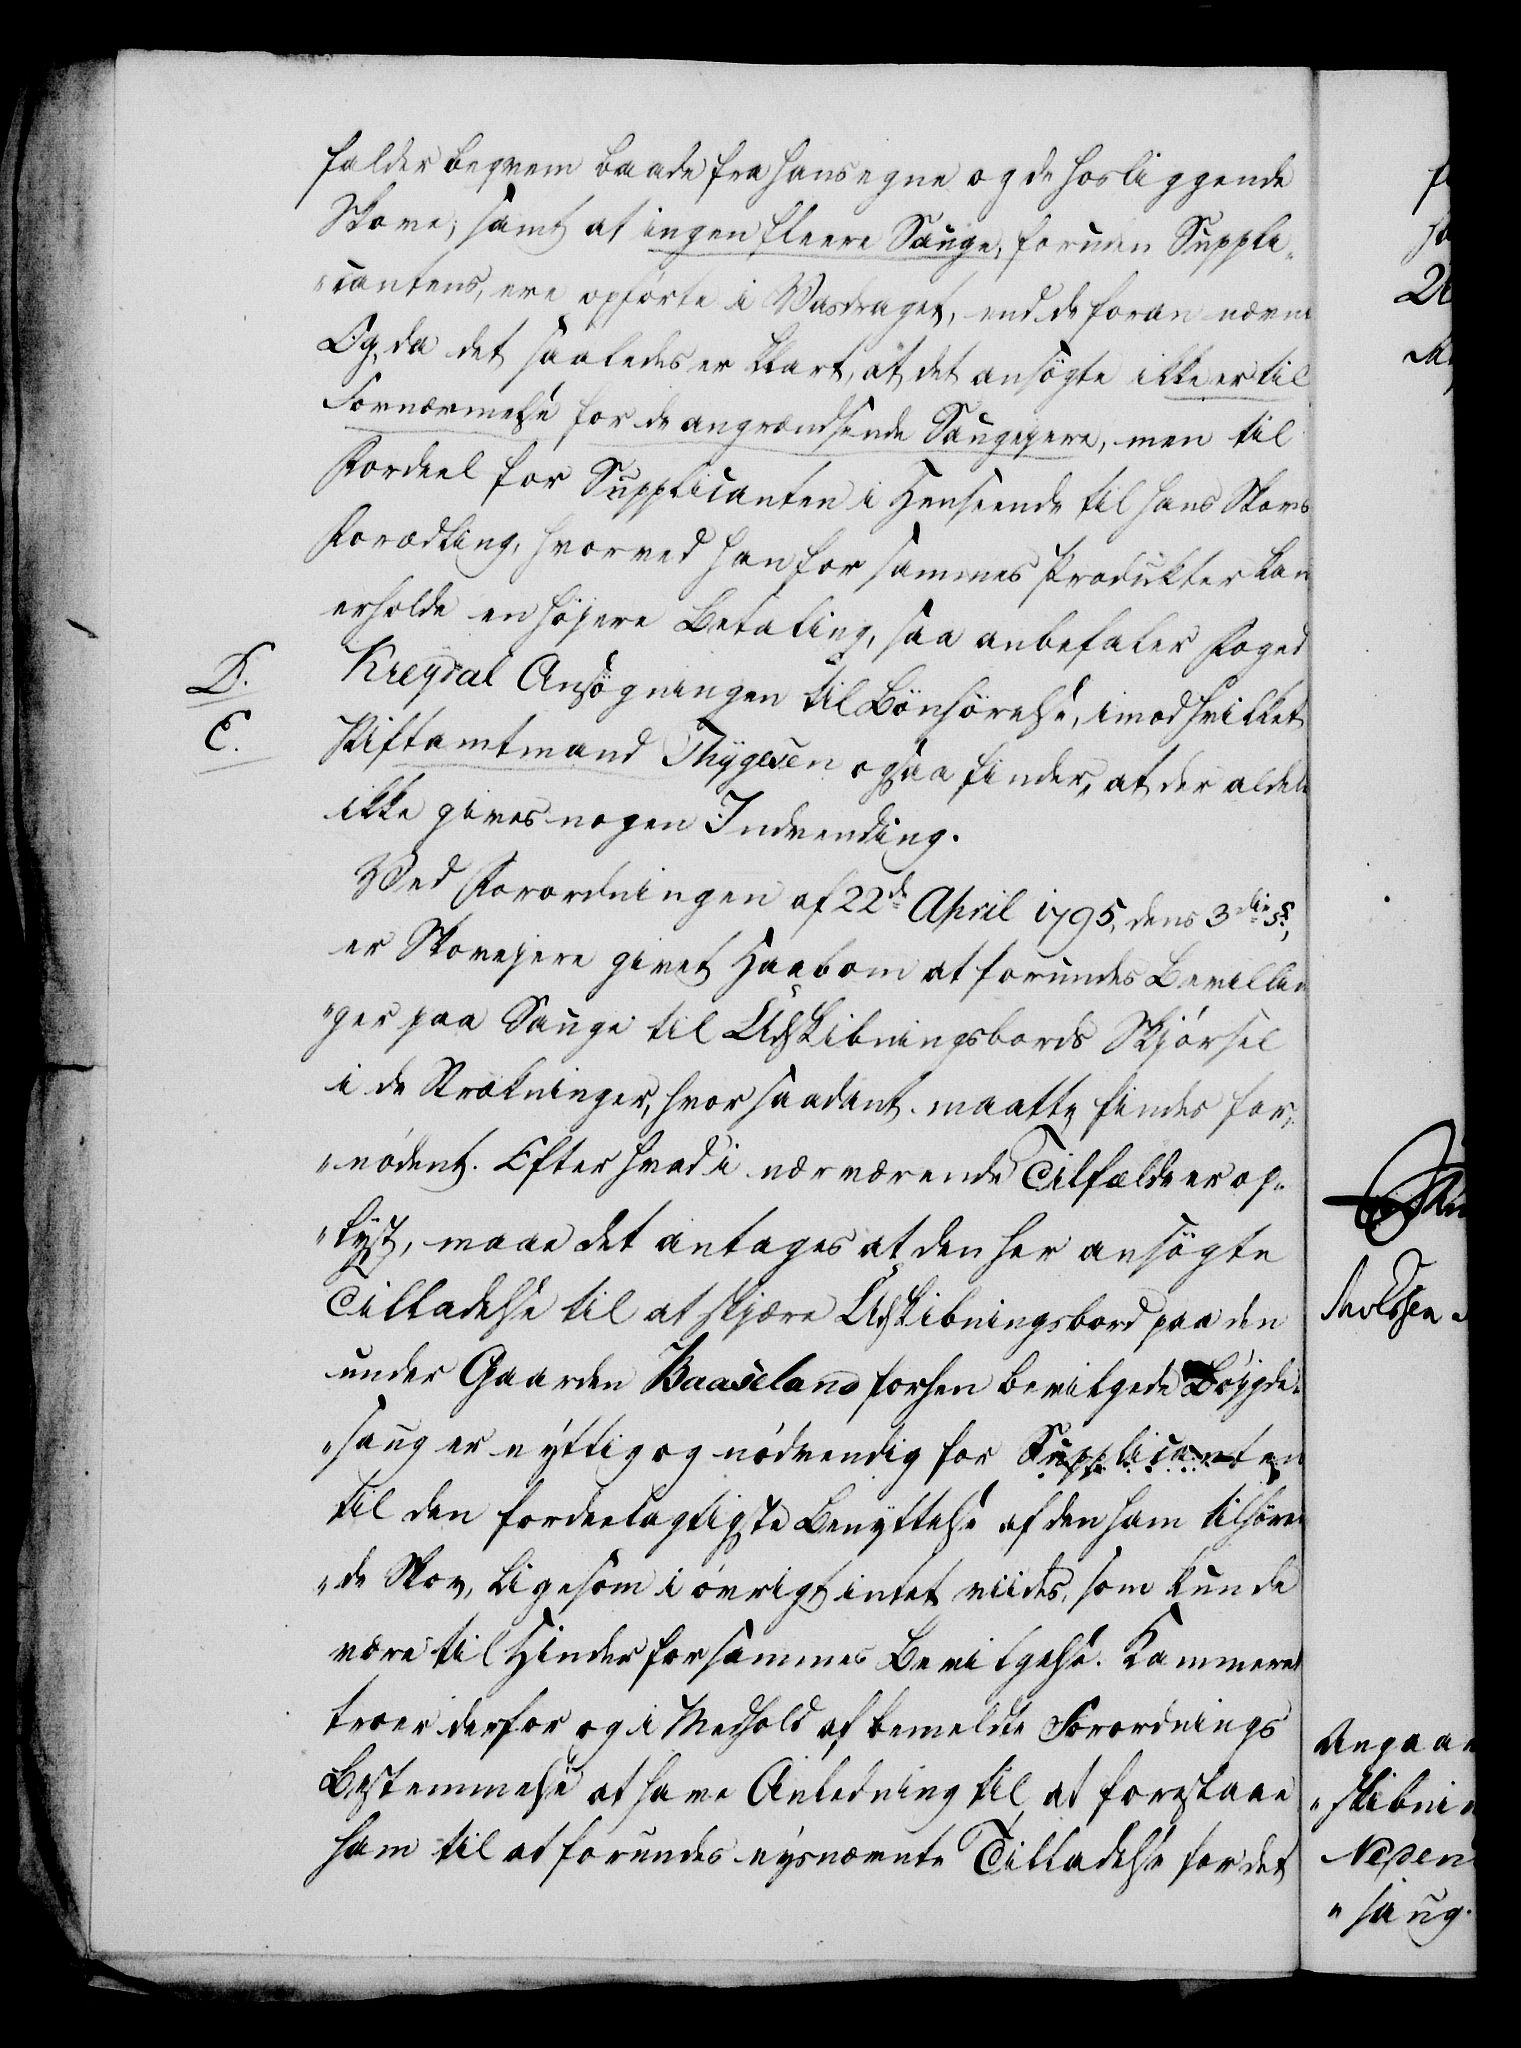 falder beqvem baade fra hans egne og de hosliggende
Skove; samt at ingen fleere Sauge, foruden Suppli„
„cantens, ere opförte i Vasdraget, end de foran nævn
Og, da det saaledes er klart, at det ansögte ikke er til
Fornærmelse for de angrændsende Saugejere, men til
Fordeel for Supplicanten i Henseende til hans Skovs
Forædling, hvorved han for sammes Produkter kan
erholde en höjere Betaling, saa anbefaler Foged
D. Kreydal Ansögningen til Bönhörelse, imod hvilket
E. Stiftamtmand Thygesen ogsaa finder, at der aldele
ikke gives nogen Indvending.
Ved Forordningen af 22de April 1795, dens 3die §,
er Skovejere givet Haab om at forundes Bevillin
„ger paa Sauge til Udskibningsbords Skjörsel
i de Strækninger, hvor saadant maatte findes for„
„nödent. Efter hvad i nærværende Tilfælde er op„
„lyst, maae det antages at den her ansögte
Tilladelse til at skjære Udskibningsbord paa den
under Gaarden Baaseland forhen bevilgede Böygde„
„saug er nyttig og nödvendig for Supplicanten
til den fordeelagtigste Benyttelse af den ham tilhören
„de Skov, ligesom i övrigt intet viides, som kunde
være til Hinder for sammes Bevilgelse. Kammeret
troer derfor og i Medhold af bemeldte Forordnings
Bestemmelse at have Anledning til at foreslaae
ham til at forundes nysnævnte Tilladelse for det
Angaae
„skibni
Neden
„saug.